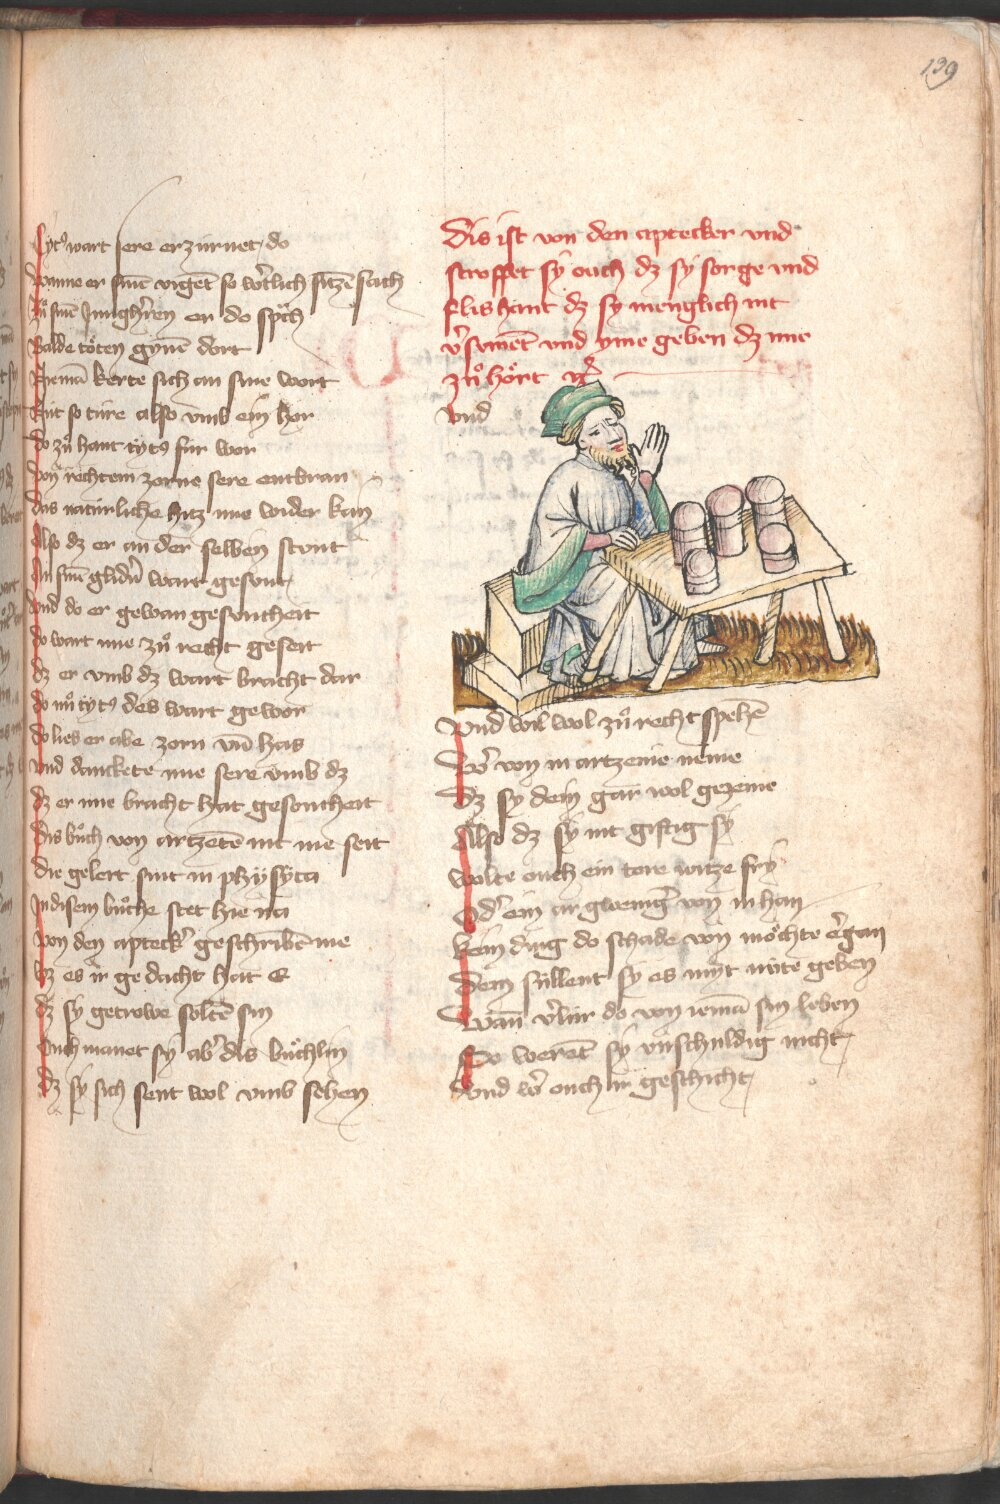 139
Tyt⁹ wart sere erzürnet do
Wanne er sinē vigēt so w̓tlich sitzē sach
Zuͦ sinē Jungh̓ren en do sp̓ch
Balde toͤten gynē dort
Niemā kerte sich an sine wort
Nit so türe also vmb ein hor
Do zuͦ hant tyt⁹ für wor
Von rechtem zorne sere enbran
Das natürliche hitz ime wider kan
Also dz er an der selben stunt
An sinē glidn̄ wart gesunt
Vnd do er gewan gesuntheit
Do wart ime zuͦ recht geseit
Dz er vmb dz wart bracht dar
Do nuͦ tyt⁹ des wart gewor
Do lies er abe zorn vn̄ has
Vnd danckete ime sere vmb dz
Dz er ime bracht hat gesontheit
Dis buͦch von artzetē nit me seit
Die gelert sint in physyca
In disem buͦche stet hie na
Von den apteck̓ geschribē me
Wz es ir gedacht hat E
Dz sy getrowe soltē sin
Ouch manet sy ab̓ dis buͤchlin
Dz sy sich sent wol vmb sehen
Dis ist von den aptecker vnd
stroffet sy ouch dz sy sorge vnd
flis hant dz sy menglich nit
v̓sumēt vnd yme geben dz ime
zuͦ hoͤrt
Vnd
Vnd wil wol zuͦ recht spehē
W̓ von in artzenie neme
Dz sy dem gar wol gezeme
Also dz sy nit giftig sy
Wolte ouch ein tore witze fry
Od̓ ein argwenig̓ von in han
Kein ding do schade von moͤchte e̓gan
Dem süllent sy es nüt mite geben
Wan̄ v̓lür do von iemā sin leben
So werēt sy vnschuldig nicht
Vnd w̓ ouch ir geschicht